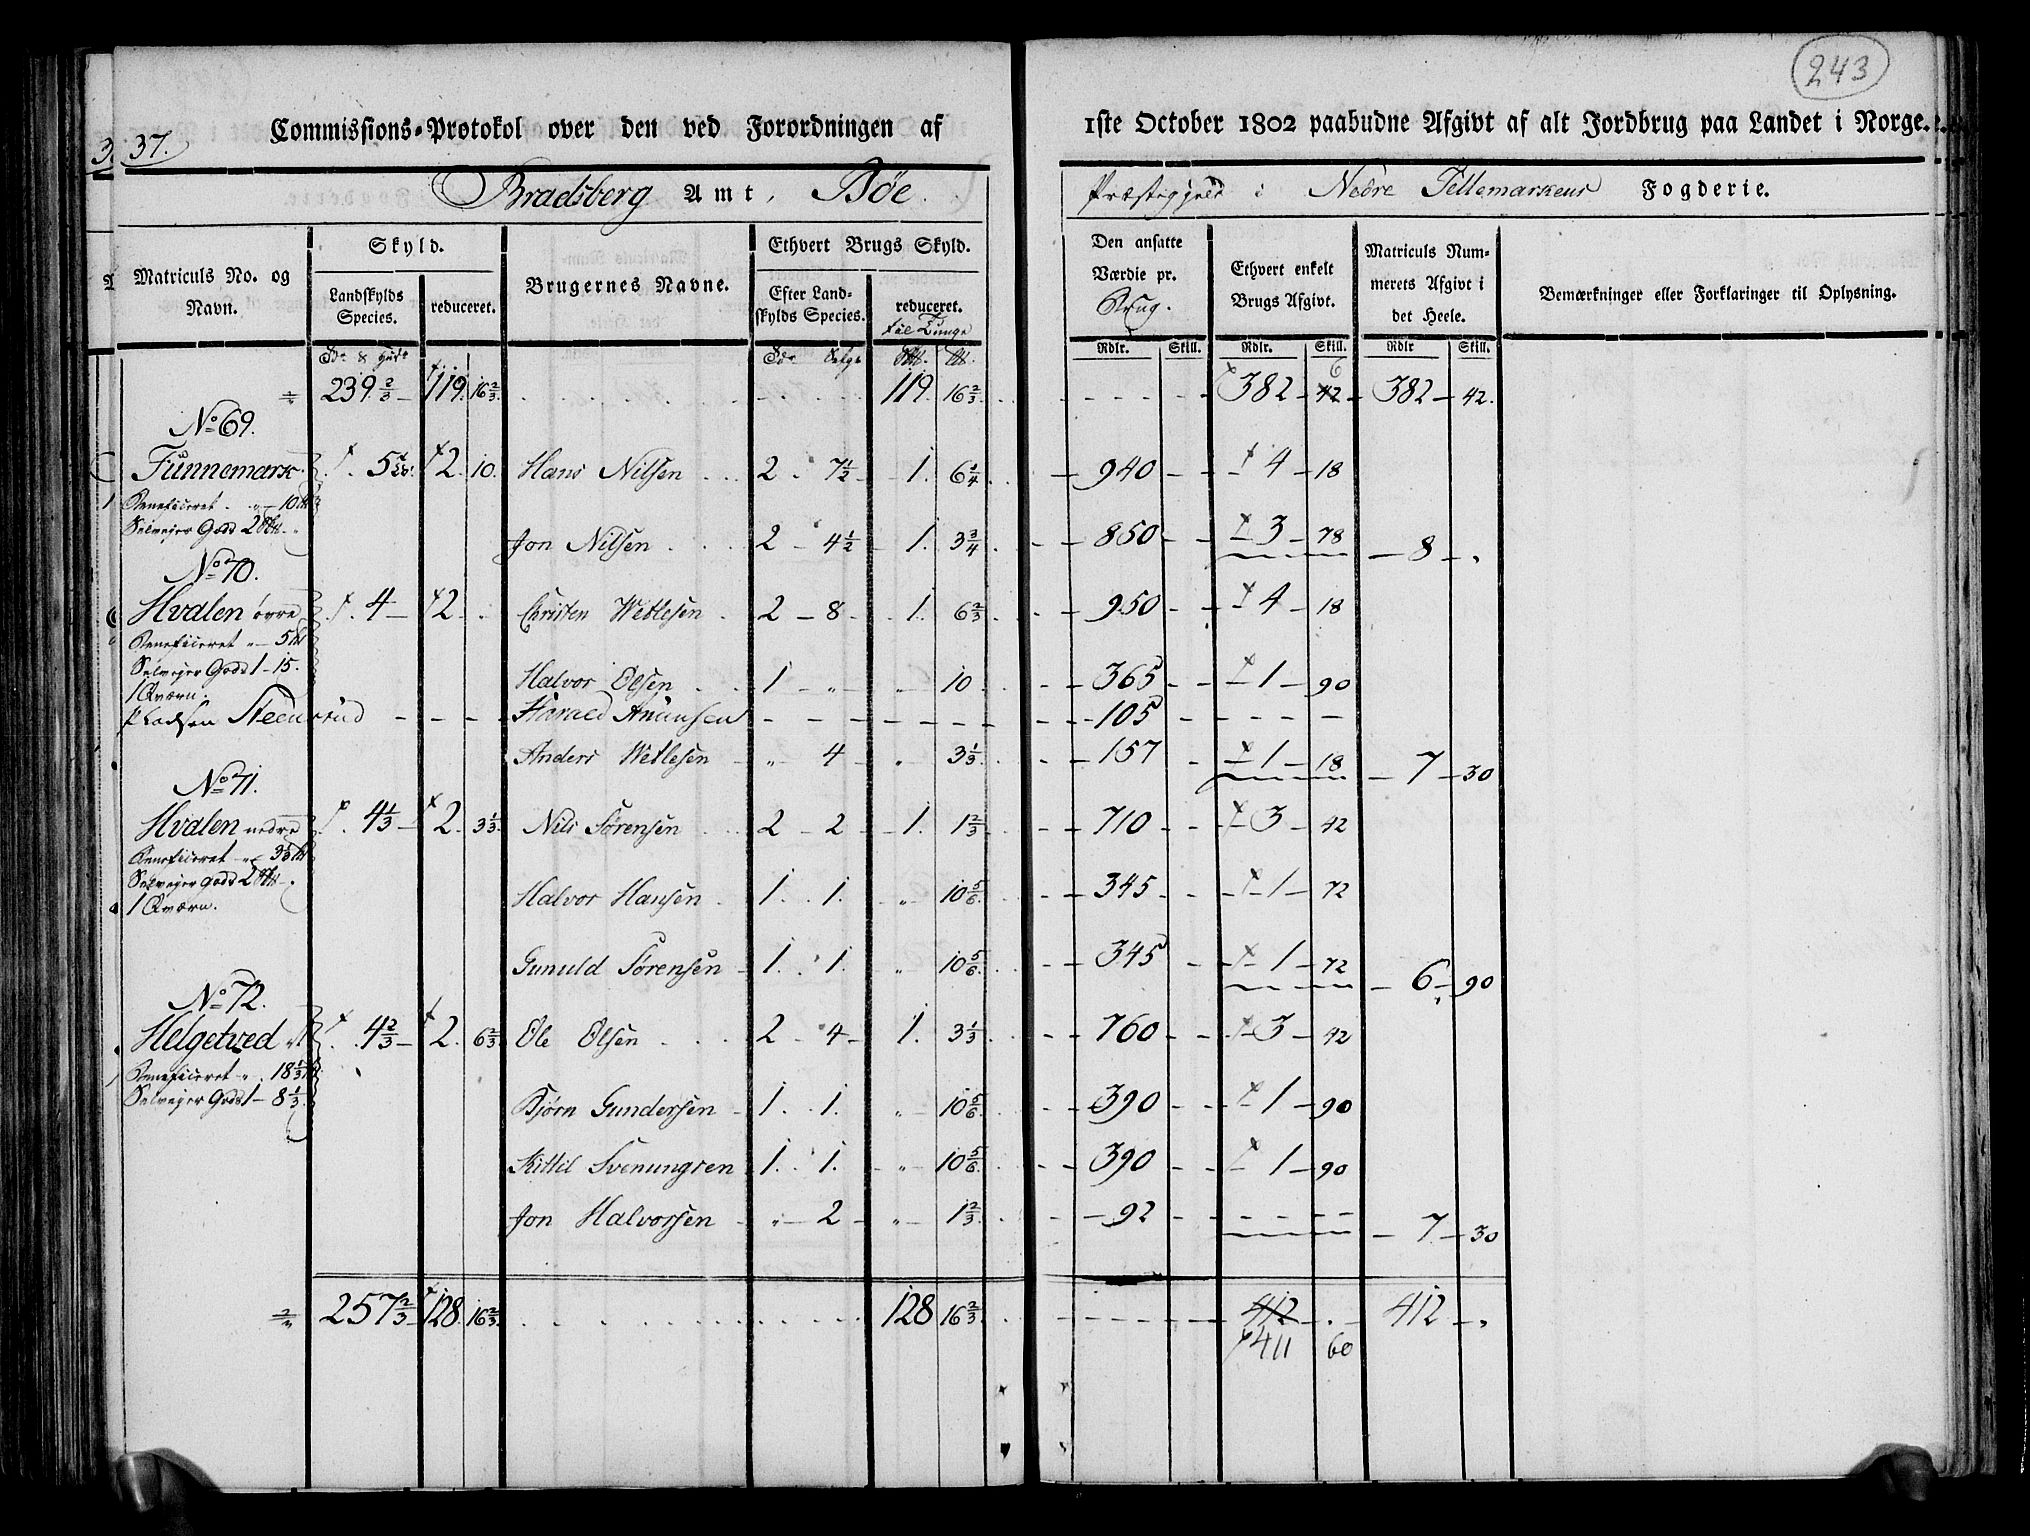 243
3. 37. Commissions-Protokol over den ved Forordningen af 1ste October 1802 paabudne Afgivt af alt Jordbrug paa Landet i Norge.
Bradsberg Amt, Böe. Præstegjeld i Nedre Tellemarkens Fogderie.
Matriculs No. og Navn.
Skyld.
Landskylds Species.
reduceret.
Brugernes Navne.
Ethvert Brugs Skyld.
Efter Landskylds Species.
reduceret.
til Tunge
Den ansatte Værdie pr. Brug.
Ethvert enkelt Brugs Afgivt.
Matriculs Nummerets Afgivt i det Heele.
Bemærkninger eller Forklaringer til Oplysning.
Rdlr. Skill. Rdlr. Skill. Rdlr Skill.
239 2/3 119. 16 2/3 119. 16 2/3 382 42 6 382 42.
No 69.
Funnemark 5 2. 10. Hans Nilsen 2 7 1/2 1. 6 1/4 940 4 18
Beneficeret 10
Selvejer Gods 2 Jon Nilsen 2 4 1/2 1. 3 3/4 850 3 78 8 "
No 70.
Hvalen övre 4 2 Christen Wetlesen 2 8 1. 6 2/3 950 4 18
Beneficeret " 5
Selvejer Gods 1 - 15. Halvor Olsen 1 " " 10 365 1 90
1 Qværn.
Pladsen Steensrud Harald Anunsen 105
Anders Wetlesen " 4 " 3 1/3 157 1 18 7 30
No 71.
Hvalen nedre 4 1/3 2 3 1/3 Nils Sörensen 2 2 1. 1 2/3 710 3 42
Beneficeret " 3 1/3
Selvejer gods 2 Halvor Hansen 1. 1. " 10 5/6 345 1 72
1 Qværn.
Gunuld Sörensen 1. 1. " 10 5/6 345 1 72 6 90
No 72.
Helgetved 4 2/3 2. 6 2/3 Ole Olsen 2 4 1. 3 1/3 760 3 42
Beneficeret " 18 1/3
Selvejer Gods 1 - 8 1/3 Björn Gundersen 1. 1. " 10 5/6 390 1 90
Kittil Svenungsen 1. 1. " 10 5/6 390 1 90
Jon Halvorsen " 2 " 1 2/3 92 7 30
257 2/3 128. 16 2/3 128 16 2/3 412 412 "
411 60